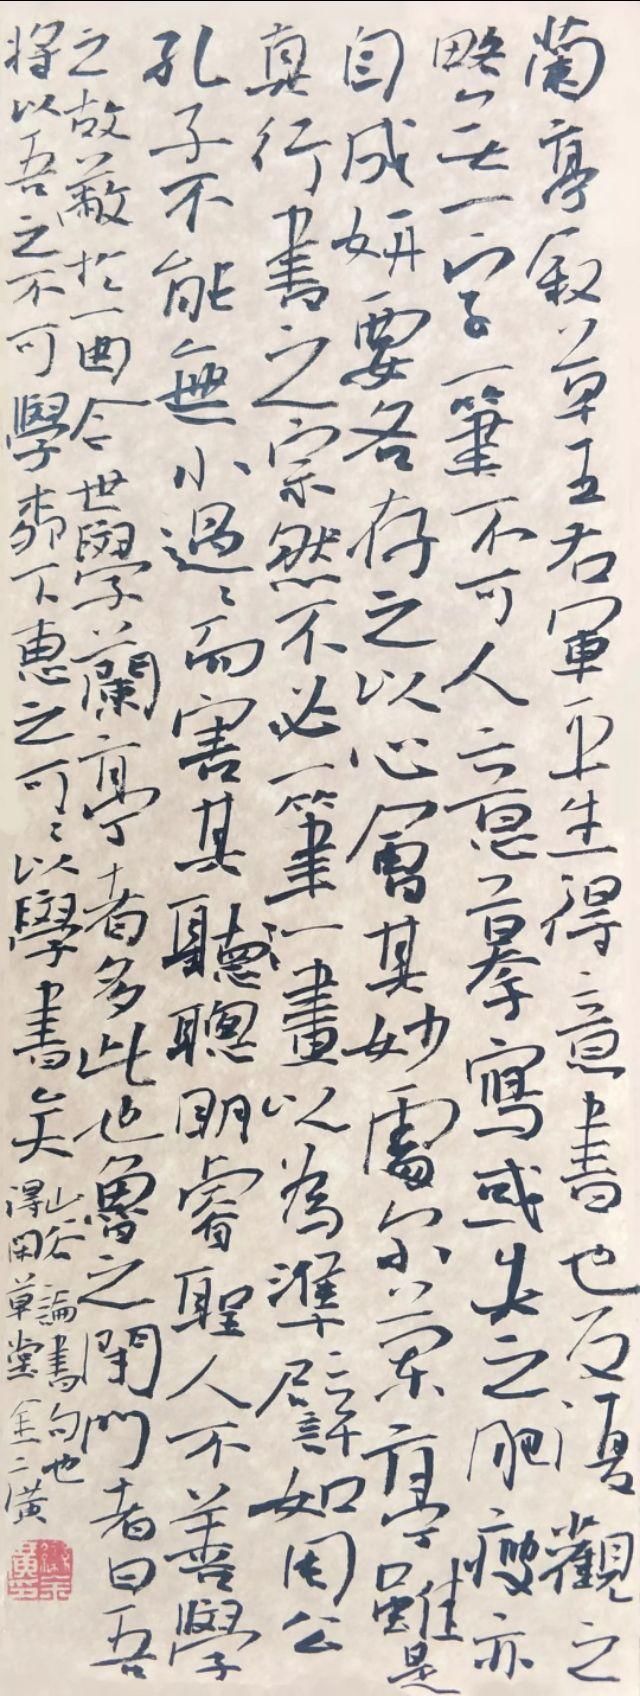 蘭亭叙草王右軍平生得意書也反復觀之
略無一字一筆不可人意摹寫或失之肥瘦亦
自成妍要各存之以心會其妙處尔蘭亭雖是
真行書之宗然不必一筆一畫以為準辟如周公
孔子不能無小過過而害其聰明睿聖人不善學
之故蔽於一曲今世學蘭亭者多此也魯之閉門者曰吾
將以吾之不可學柳下惠之可可以學書矣
山谷論書句也
得閑草堂